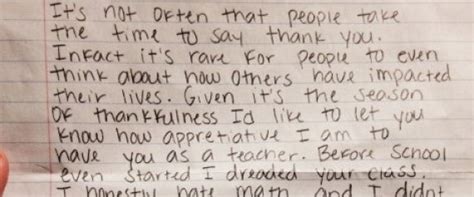 It's not often that people take
the time to say thank you.
Infact it's rare for people to even
think about how others have impacted
their lives. Given it's the season
of thankfulness I'd like to let you
know how appretiative I am to
have you as a teacher. Before school
even started I dreaded your class.
I honestly hate math and I didnt